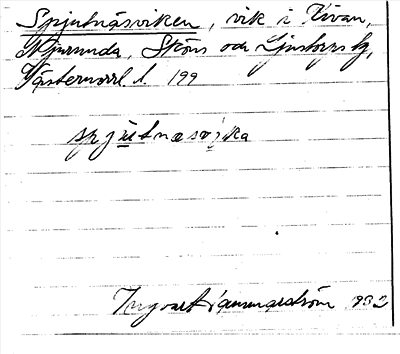 Spjutnäsviken, vik i Rivan,
Njurunda, Sköns och Ljustorps tg,
Västernorrl. l. 199
spjutnæsvika
Ingvart Hammarström 1932